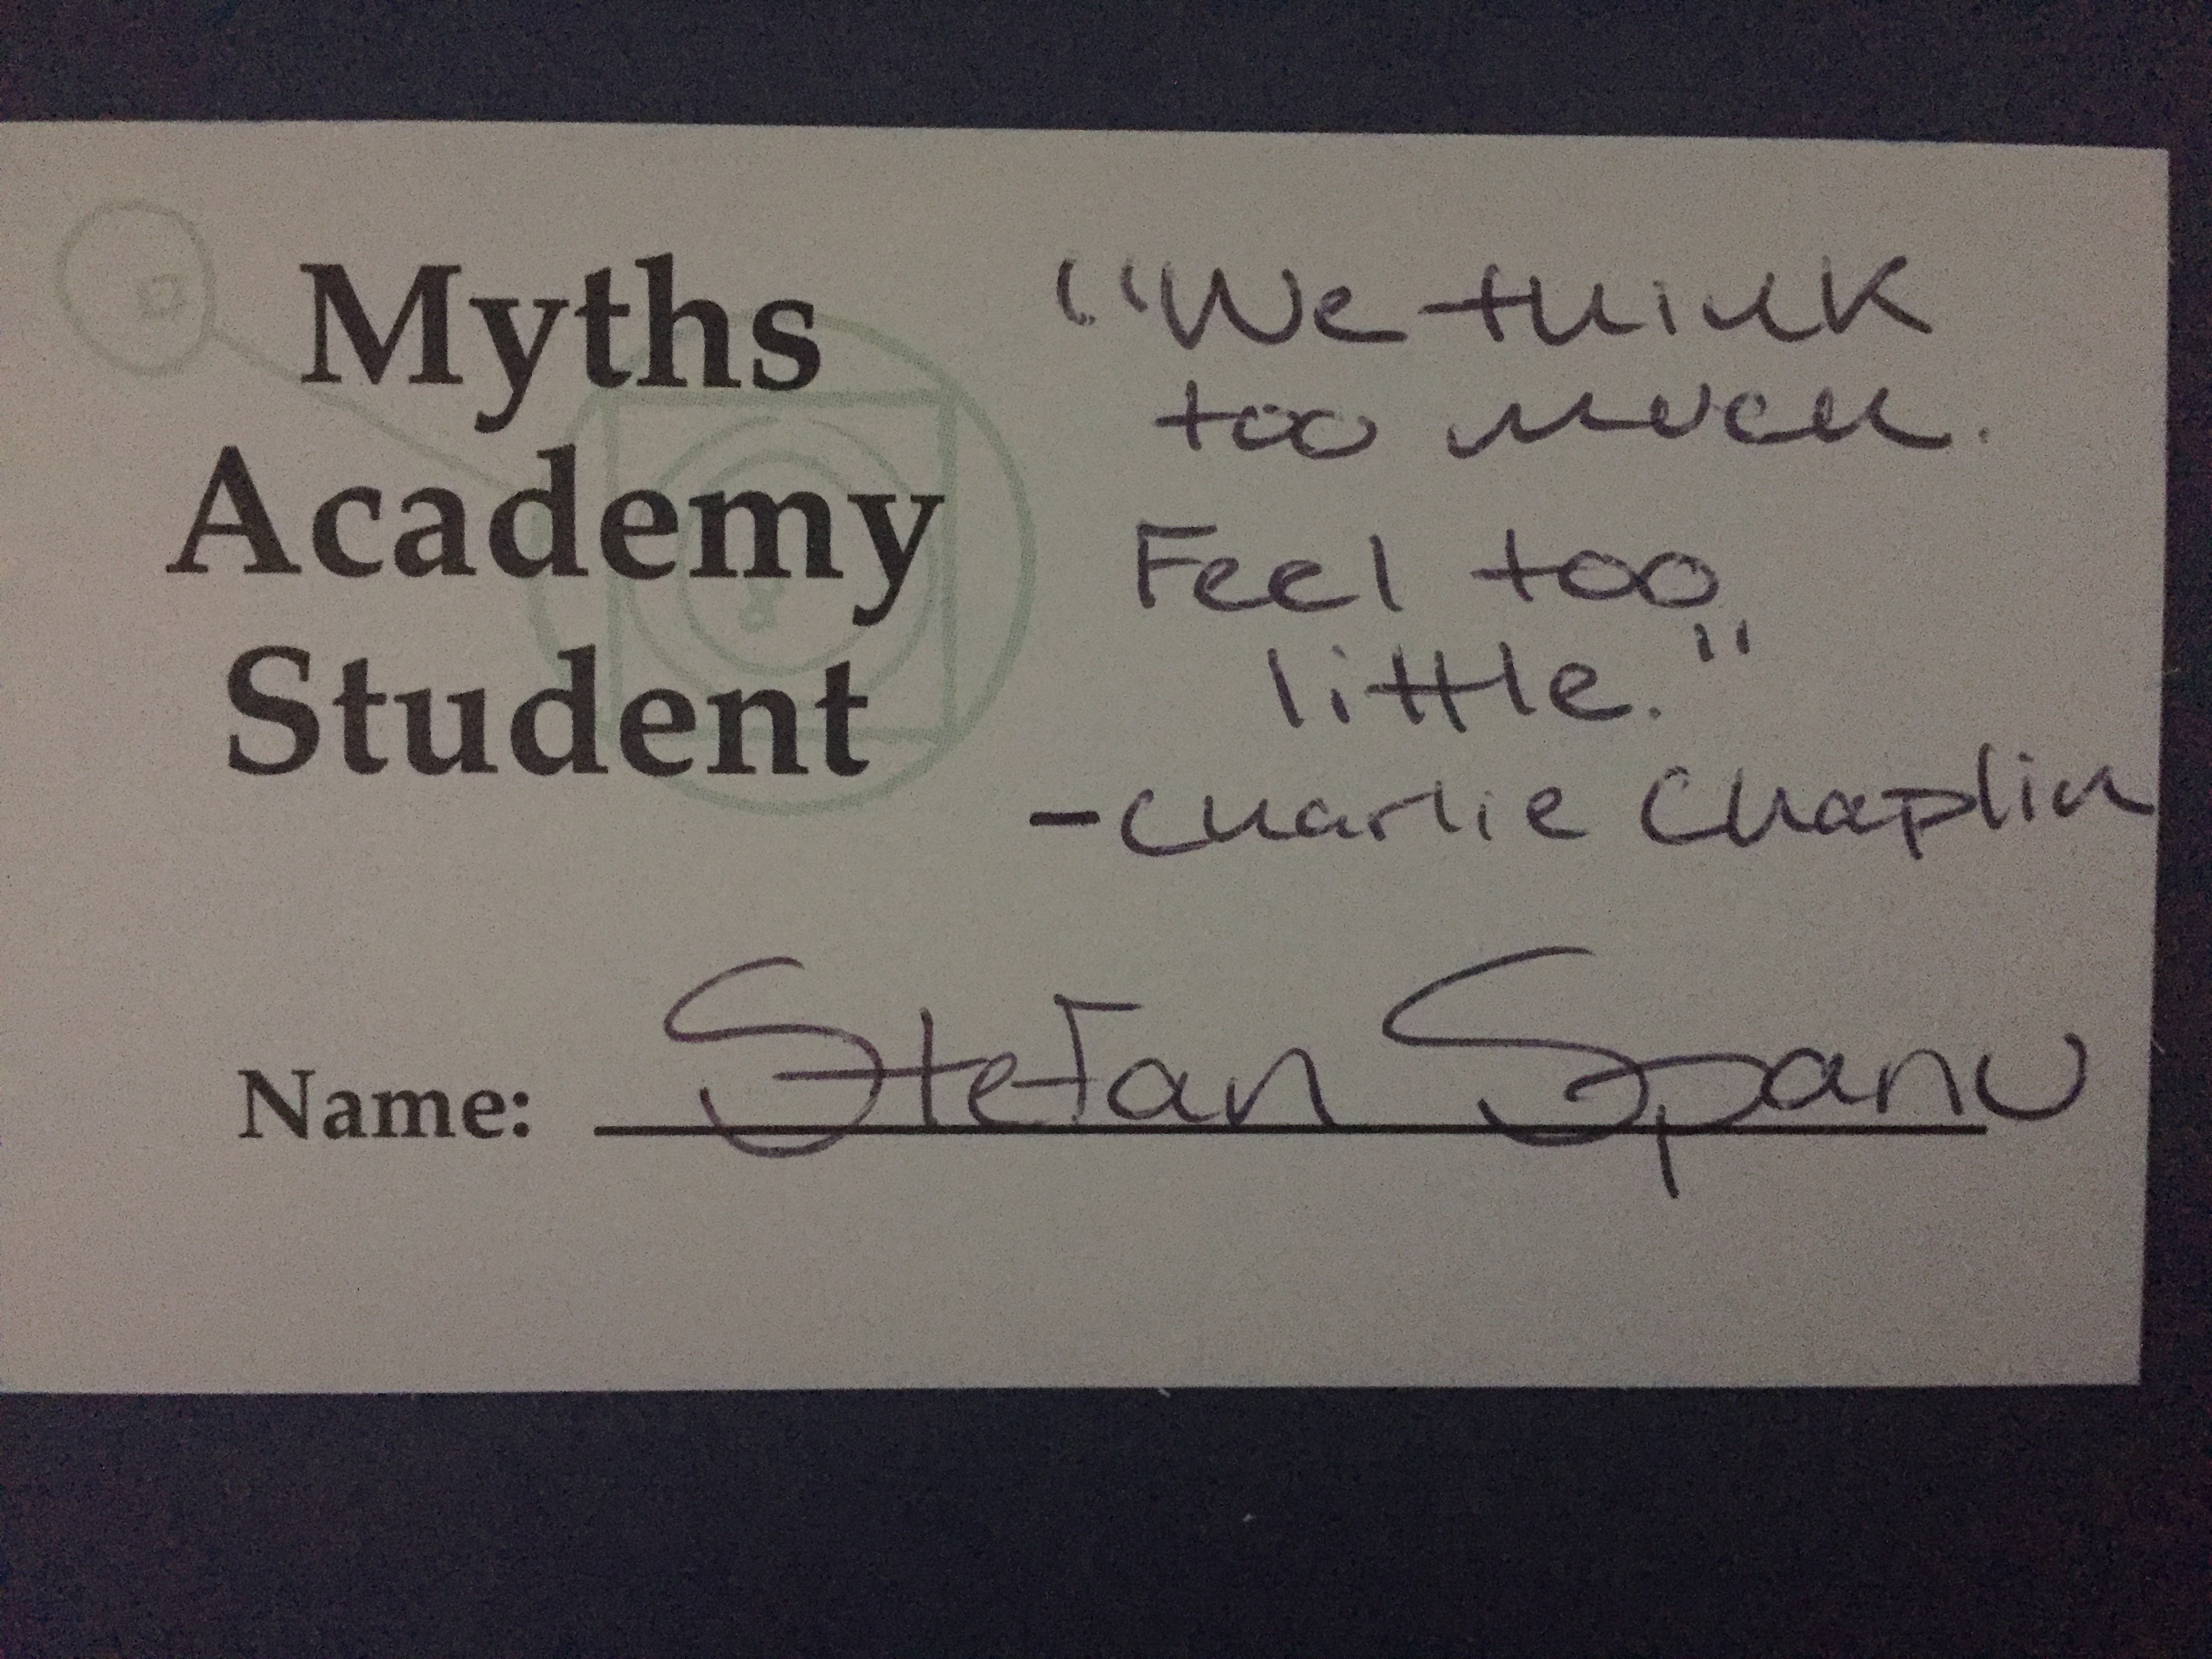 Myths
Academy
Student
"We think
too much.
Feel too
little."
- Charlie Chaplin
Name: Stefan Spanu